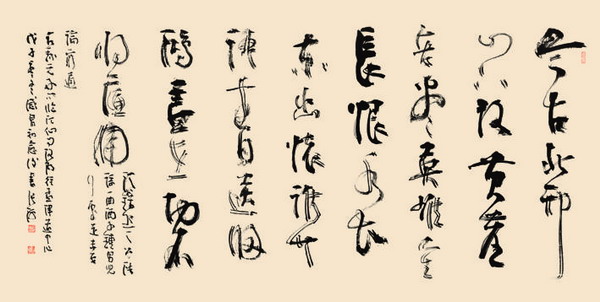 今古北邙
山下路黄塵
老盡英雄人生
長恨水長
東幽懷誰共
語遠目送歸
鴻蓋世功名
將底用
從前錯怨天公浩
歌一曲酒千鍾男兒
行處是未要
論窮通
元好問臨江仙自洛陽往孟津道中作
戊子